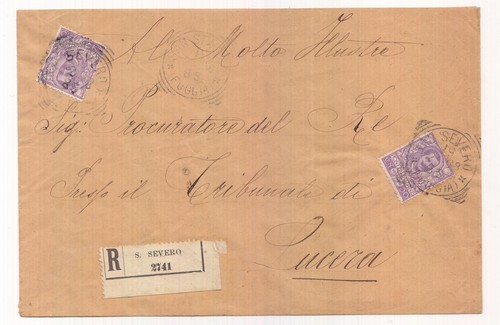 Al Molto Illustre
Sig. Procuratore del Re
Presso il Tribunale di
Lucera
R
S. SEVERO
2741
SEVERO
FOGGIA
SEVERO
(FOGGIA)